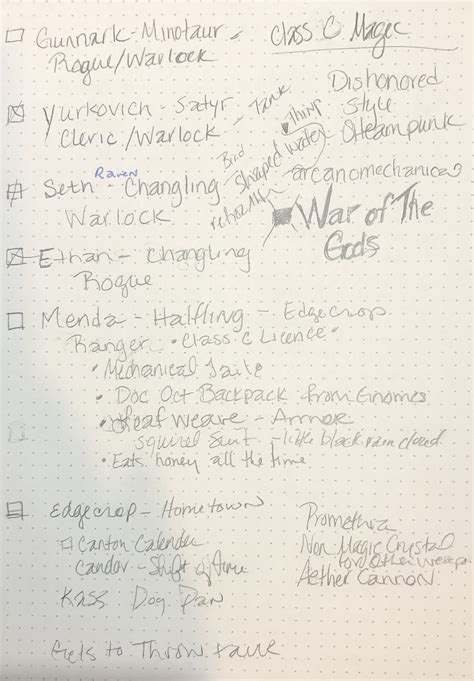 Gunnark - Minotaur -
Rogue/Warlock
Class C Magec
Yurkovich - Satyr
Cleric/Warlock - Tank
Dishonored
Style
Steampunk
arcanomechanical
Thing
Bird
Shaped water
Raven
Seth - Changling
Warlock
War of The
Gods
Ethan - Changling
Rogue
Menda - Halfling - Edgecrop
Ranger • Class C Licence •
• Mechanical
• Doc Oct Backpack from Gnomes
• Leaf Weave - Armor
squirel Suit - little black rain cloud
• Eats honey all the time
Edgecrop - Hometown
Canton Calender
candor - Shift of
Kass Dog Dan
Promethra
Non Magic Crystal
for other weapo
Aether Cannon
to Throw